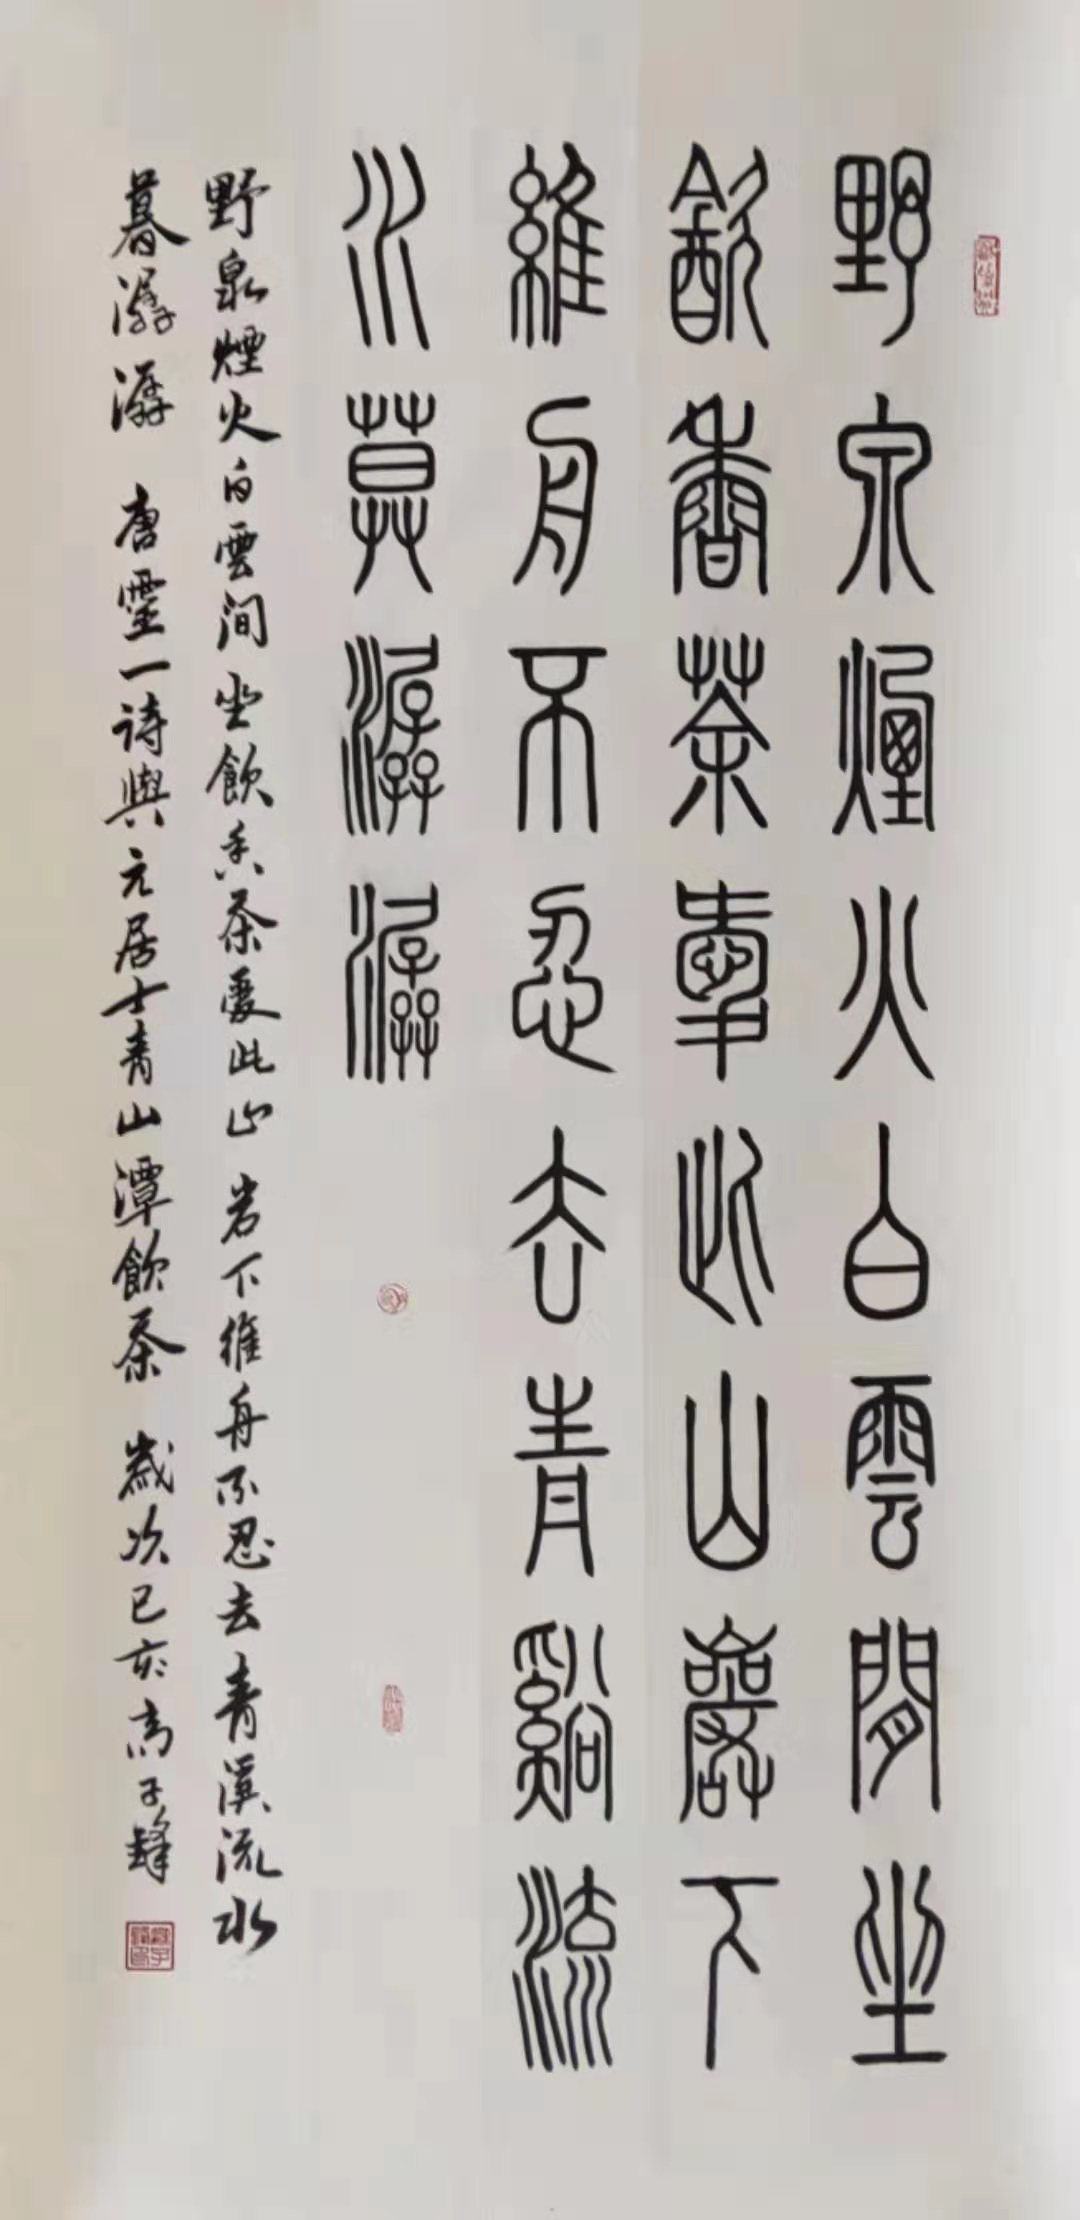 野泉煙火白雲間坐
飲香茶愛此山巖下
維舟不忍去青谿流
水莫潺潺
野泉煙火白雲間坐飲香茶愛此山岩下維舟不忍去青溪流水
暮潺潺 唐靈一诗與元居士青山潭飲茶 歲次己亥高子鋒